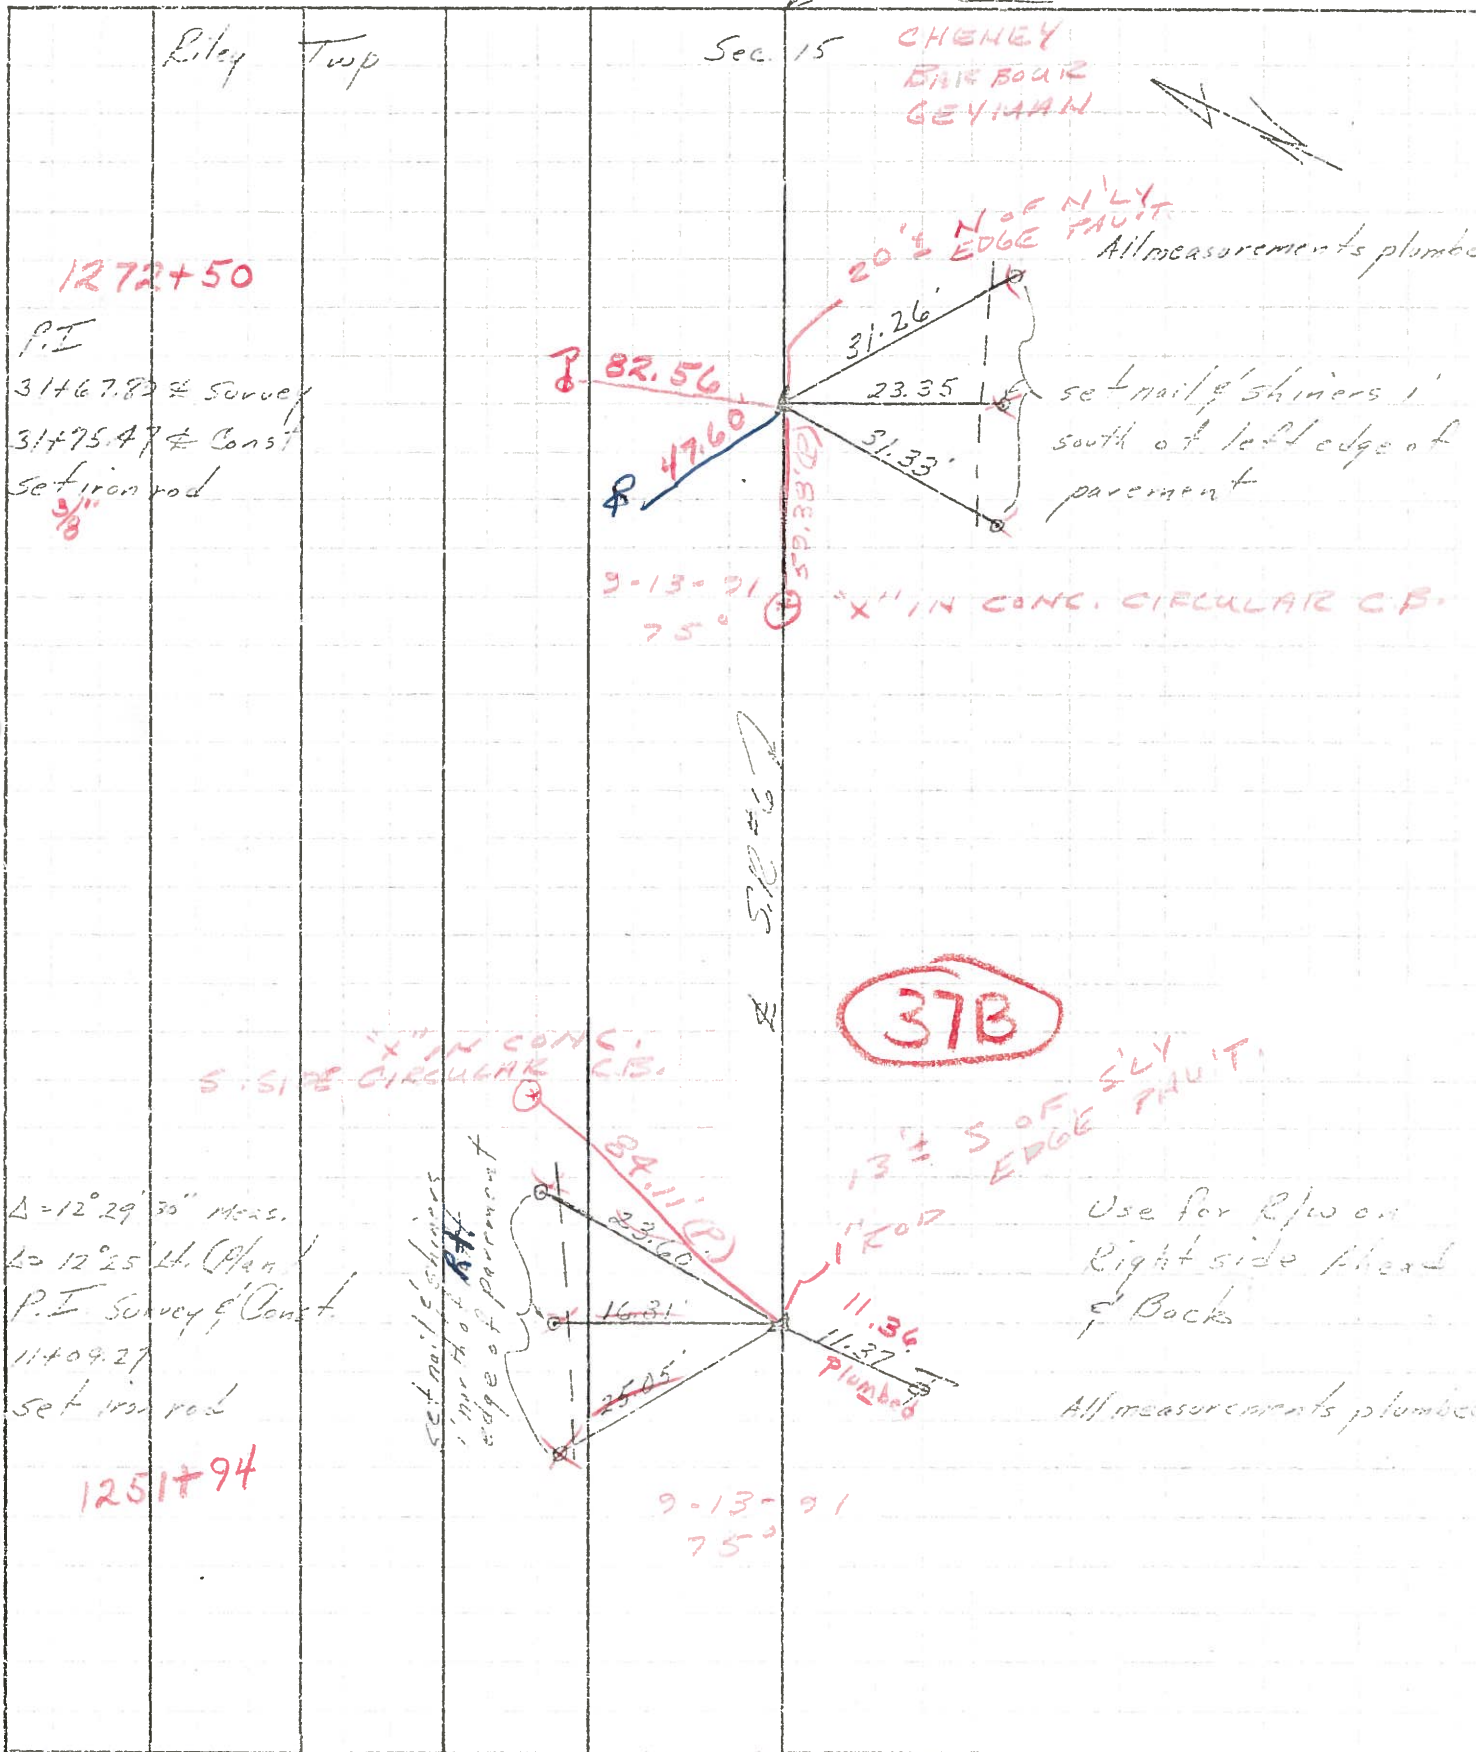 Riley Twp
Sec. 15
CHENEY
BARBOUR
GEYMAN
20'± N OF N'LY
EDGE PAV'T.
All measurements plumbe
1272+50
P.I
31+67.87 ℄ Survey
31+75.47 ℄ Const
set iron rod
3/8"
82.56
47.60'
31.26'
23.35
31.33'
59.33'(P)
set nail & shiners 1'
south of left edge of
pavement
9-13-91
75°
"X" IN CONC. CIRCULAR C.B.
℄ S.R. #6
37B
"X" IN CONC.
S. SIDE CIRCULAR C.B.
84.11'(P)
13'± S OF S'LY
EDGE PAV'T.
1" ROD
Δ=12°29'30" Meas.
Δ= 12°25' Lt. (Plan)
P.I Survey & Const.
11+09.27
set iron rod
1251+94
set nail & shiners
1' north of Rt.
edge of pavement
23.60'
16.31'
25.05'
11.36
11.37'
plumbed
Use for R/W on
Right side Ahead
& Back
All measurements plumbe
9-13-91
75°